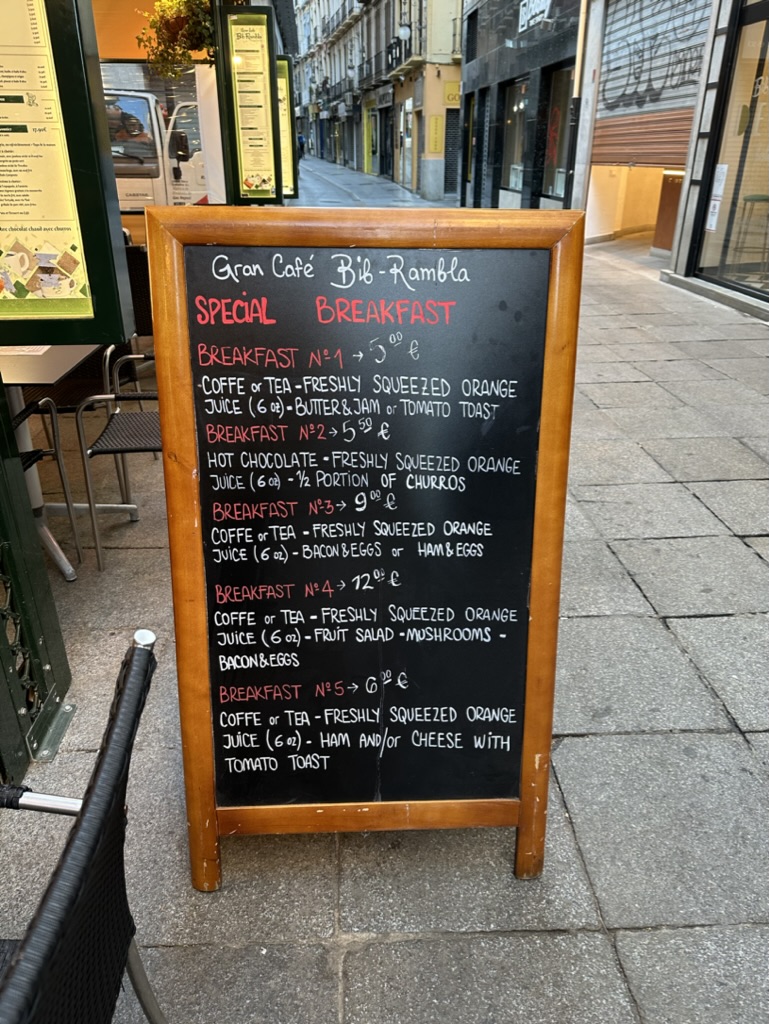 Gran Café Bib-Rambla
SPECIAL BREAKFAST
BREAKFAST Nº1 → 5,00 €
-COFFE or TEA - FRESHLY SQUEEZED ORANGE
JUICE (6 oz) - BUTTER&JAM or TOMATO TOAST
BREAKFAST Nº2 → 5,50 €
HOT CHOCOLATE - FRESHLY SQUEEZED ORANGE
JUICE (6 oz) - ½ PORTION OF CHURROS
BREAKFAST Nº3 → 9,00 €
COFFE or TEA - FRESHLY SQUEEZED ORANGE
JUICE (6 oz) - BACON&EGGS or HAM&EGGS
BREAKFAST Nº4 → 12,00 €
COFFE or TEA - FRESHLY SQUEEZED ORANGE
JUICE (6 oz) - FRUIT SALAD - MUSHROOMS -
BACON&EGGS
BREAKFAST Nº5 → 6,00 €
COFFE or TEA - FRESHLY SQUEEZED ORANGE
JUICE (6 oz) - HAM AND/or CHEESE WITH
TOMATO TOAST